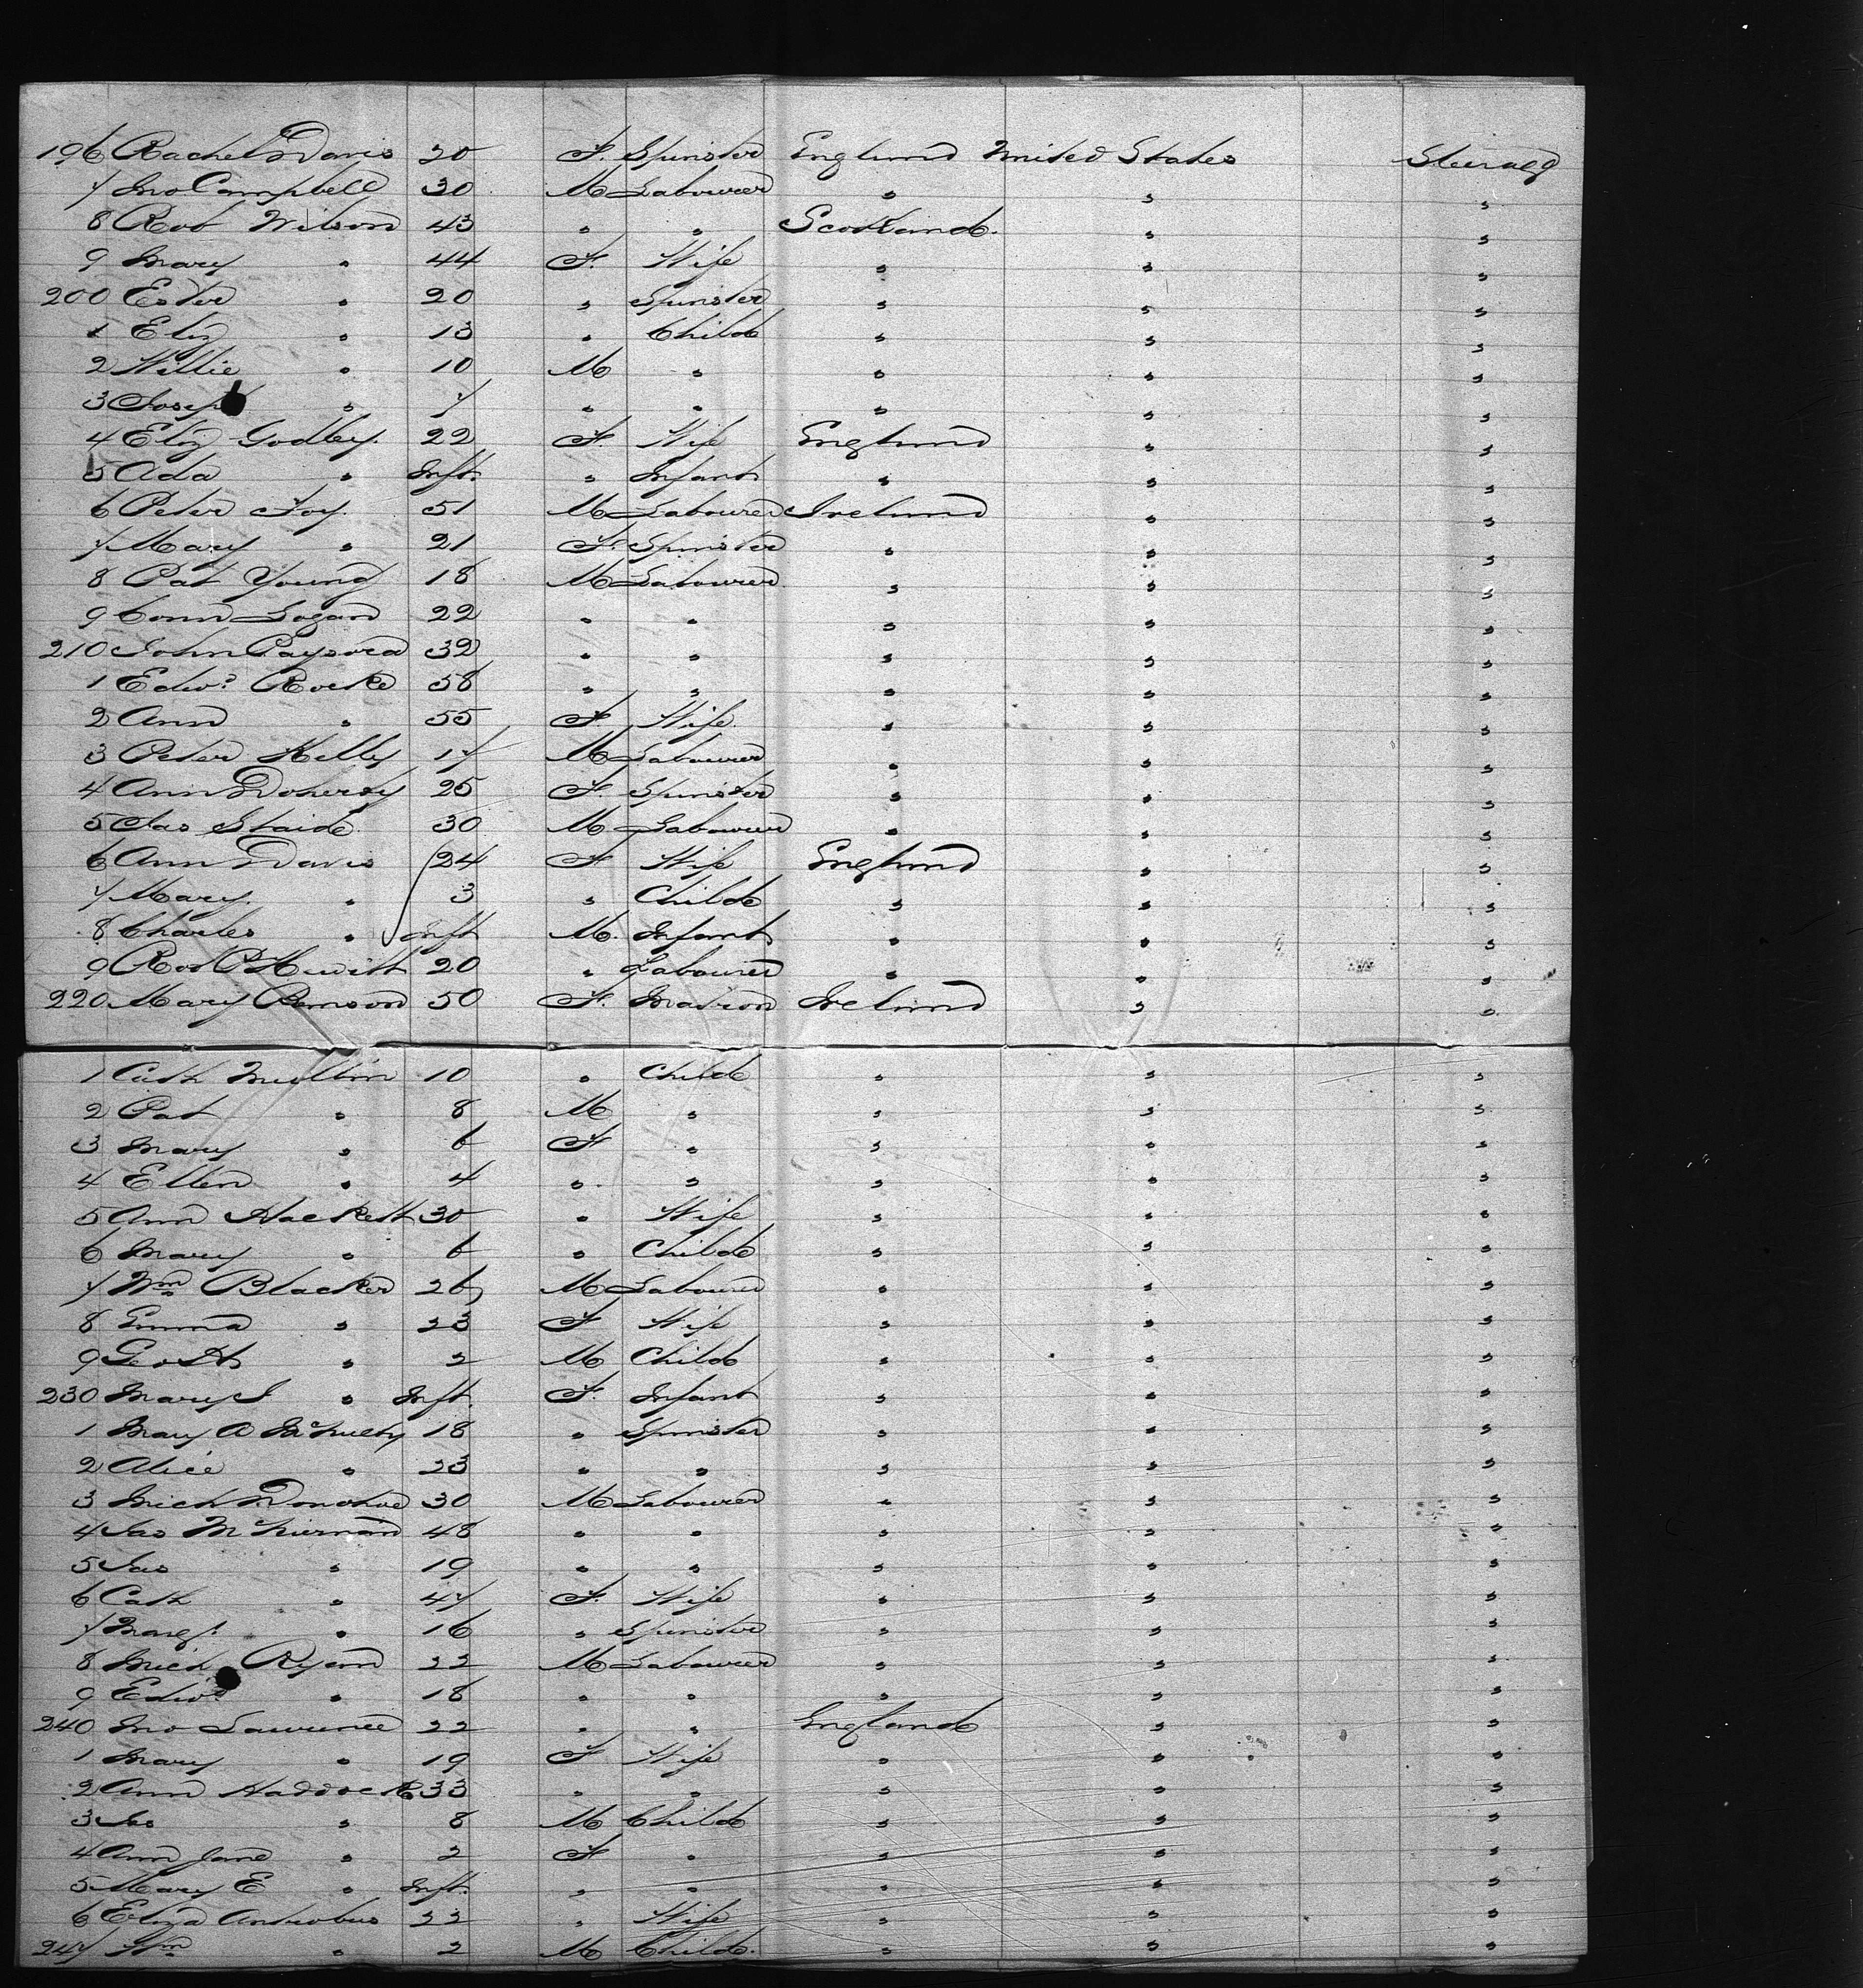 196 Rachel Davis 20 F. Spinster England United States Steerage
7 Jno Campbell 30 M Labourer " " "
8 Rob Wilson 43 " " Scotland. " "
9 Mary " 44 F. Wife " " "
200 Ester " 20 " Spinster " " "
1 Eliz " 13 " Child " " "
2 Willie " 10 M " " " "
3 Joseph " 7 " " " " "
4 Eliz Godley. 22 F Wife England " "
5 Ada " Inft. " Infant " " "
6 Peter Foy. 51 M Labourer Ireland " "
7 Mary " 21 F. Spinster " " "
8 Pat Young 18 M Labourer " " "
9 Conn Logan 22 " " " " "
210 John 32 " " " " "
1 Edwd. Rocke 58 " " " " "
2 Ann " 55 F. Wife. " " "
3 Peter Kelly 17 M Labourer " " "
4 Ann Doherty 25 F. Spinster " " "
5 Jas 30 M Labourer " " "
6 Ann Davis 24 F Wife England " "
7 Mary. " 3 " Child " " "
8 Charles " Inft M. Infant " " "
9 Rob Hewitt 20 " Labourer " " "
220 Mary 50 F. Matron Ireland " "
1 Cath 10 " Child " " "
2 Pat " 8 M " " " "
3 Mary " 6 F " " " "
4 Ellen " 4 " " " " "
5 Ann Hackett 30 " Wife " " "
6 Mary " 6 " Child " " "
7 Wm Blacker 26 M Labourer " " "
8 Emma " 23 F Wife " " "
9 Geo H " 2 M Child " " "
230 Mary J " Inft. F. Infant " " "
1 Mary A McNulty 18 " Spinster " " "
2 Alice " 23 " " " " "
3 Mich Donohoe 30 M Labourer " " "
4 Jas McKiernan 48 " " " " "
5 Jas " 19 " " " " "
6 Cath " 47 F. Wife " " "
7 Margt. " 16 " Spinster " " "
8 Mich Ryan 22 M Labourer " " "
9 Edwd " 18 " " " " "
240 Jno Lawrence 22 " " England " "
1 Mary " 19 F Wife " " "
2 Ann Haddock 33 " " " " "
3 Jas " 8 M Child " " "
4 Ann Jane " 2 F " " " "
5 Mary E " Inft. " " " " "
6 Eliza Antrobus 22 " Wife " " "
247 Wm " 2 M Child. " " "